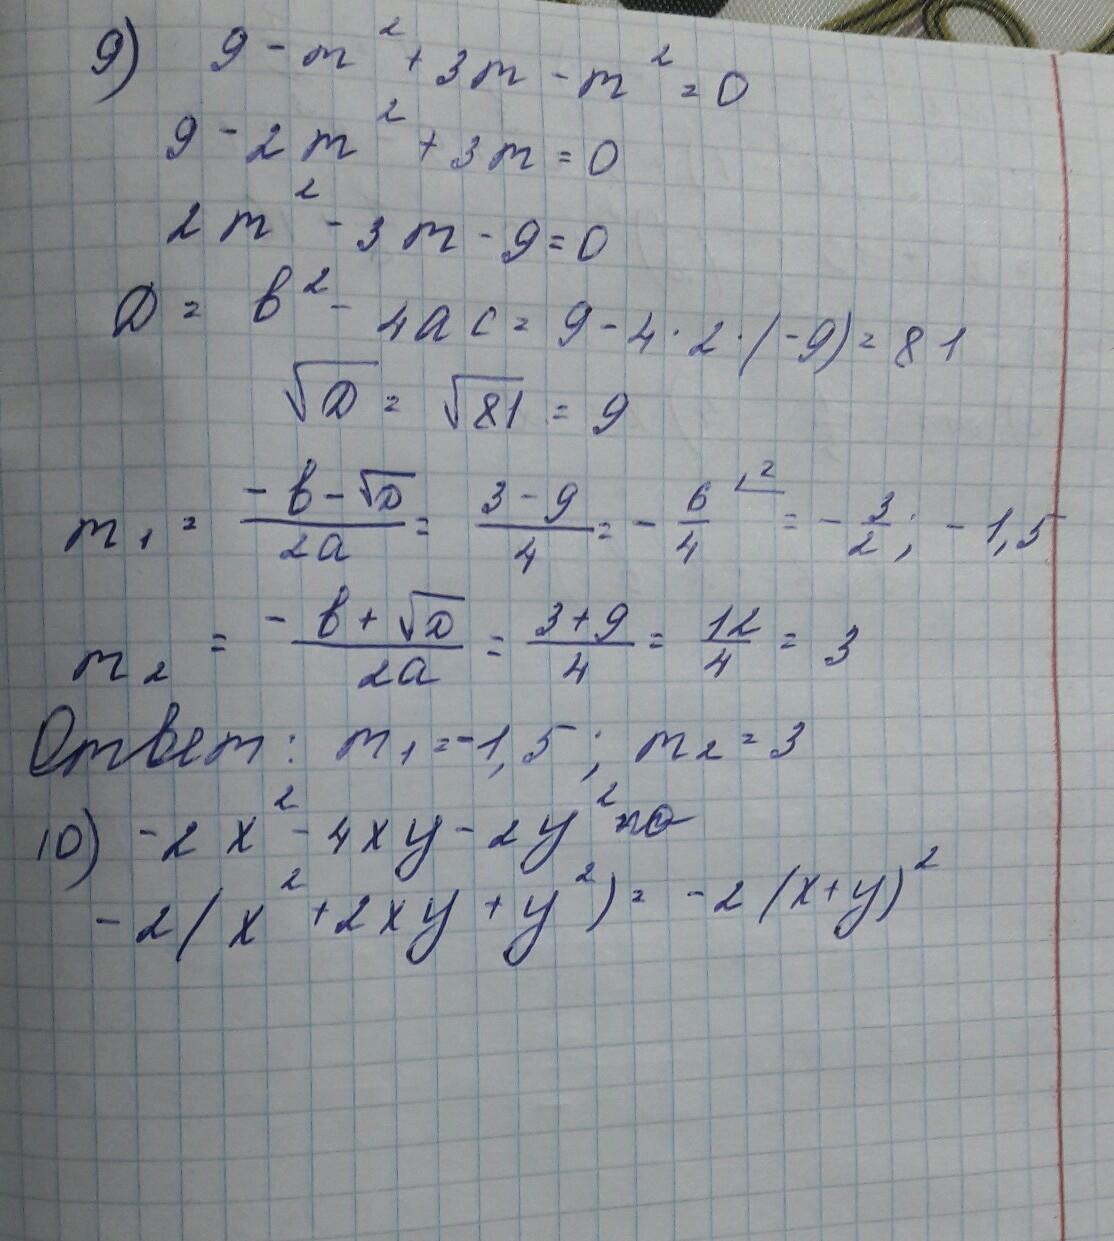 9) 9 - m² + 3m - m² = 0
9 - 2m² + 3m = 0
2m² - 3m - 9 = 0
D = b² - 4ac = 9 - 4 · 2 · (-9) = 81
√D = √81 = 9
m₁ = (-b - √D)/2a = (3 - 9)/4 = - 6/4 ^(2 = - 3/2; -1,5
m₂ = (-b + √D)/2a = (3 + 9)/4 = 12/4 = 3
Ответ: m₁ = -1,5; m₂ = 3
10) -2x² - 4xy - 2y²
-2(x² + 2xy + y²) = -2(x+y)²